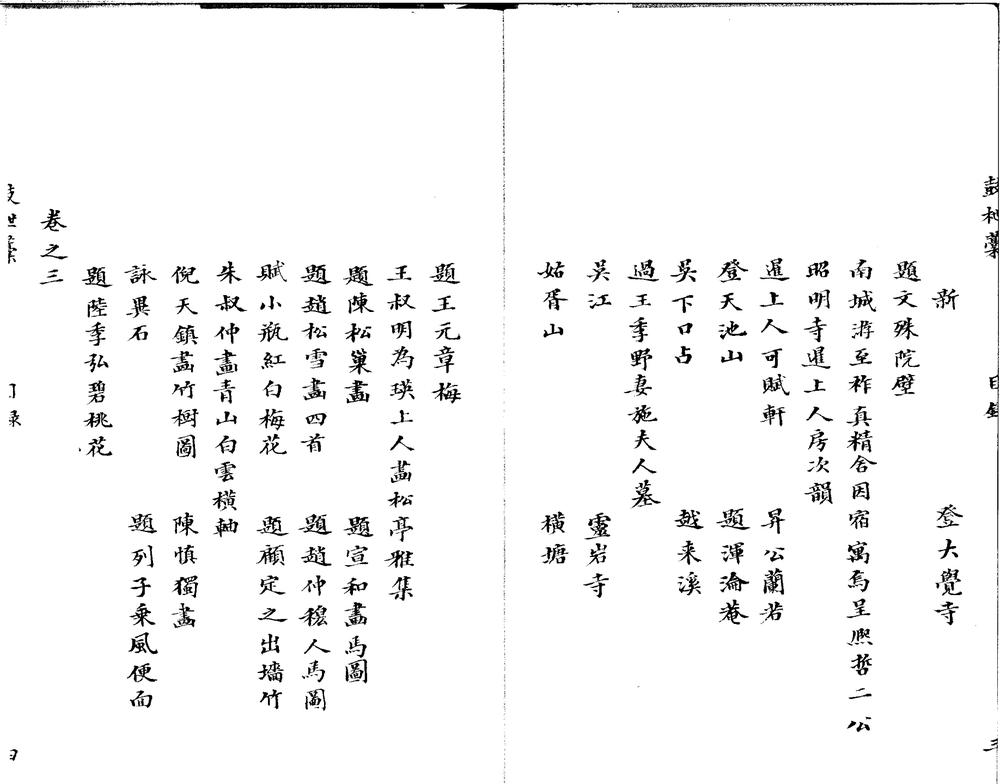 鼓枻藁 目錄 三
新 登大覺寺
題文殊院壁
南城游至祚真精舍因宿寓焉呈煕哲二公
昭明寺暹上人房次韻
暹上人可賦軒 昇公蘭若
登天池山 題渾淪菴
吳下口占 越来溪
過王季野妻施夫人墓
吳江 靈岩寺
姑胥山 橫塘
題王元章梅
王叔明為瑛上人畵松亭雅集
題陳松巢畵 題宣和畵馬圖
題趙松雪畵四首 題趙仲穆人馬圖
賦小瓶紅白梅花 題顧定之出墻竹
朱叔仲畵青山白雲橫軸
倪天鎮畵竹樹圖 陳慎獨畵
詠異石 題列子乘風便面
題陸季弘碧桃花
卷之三